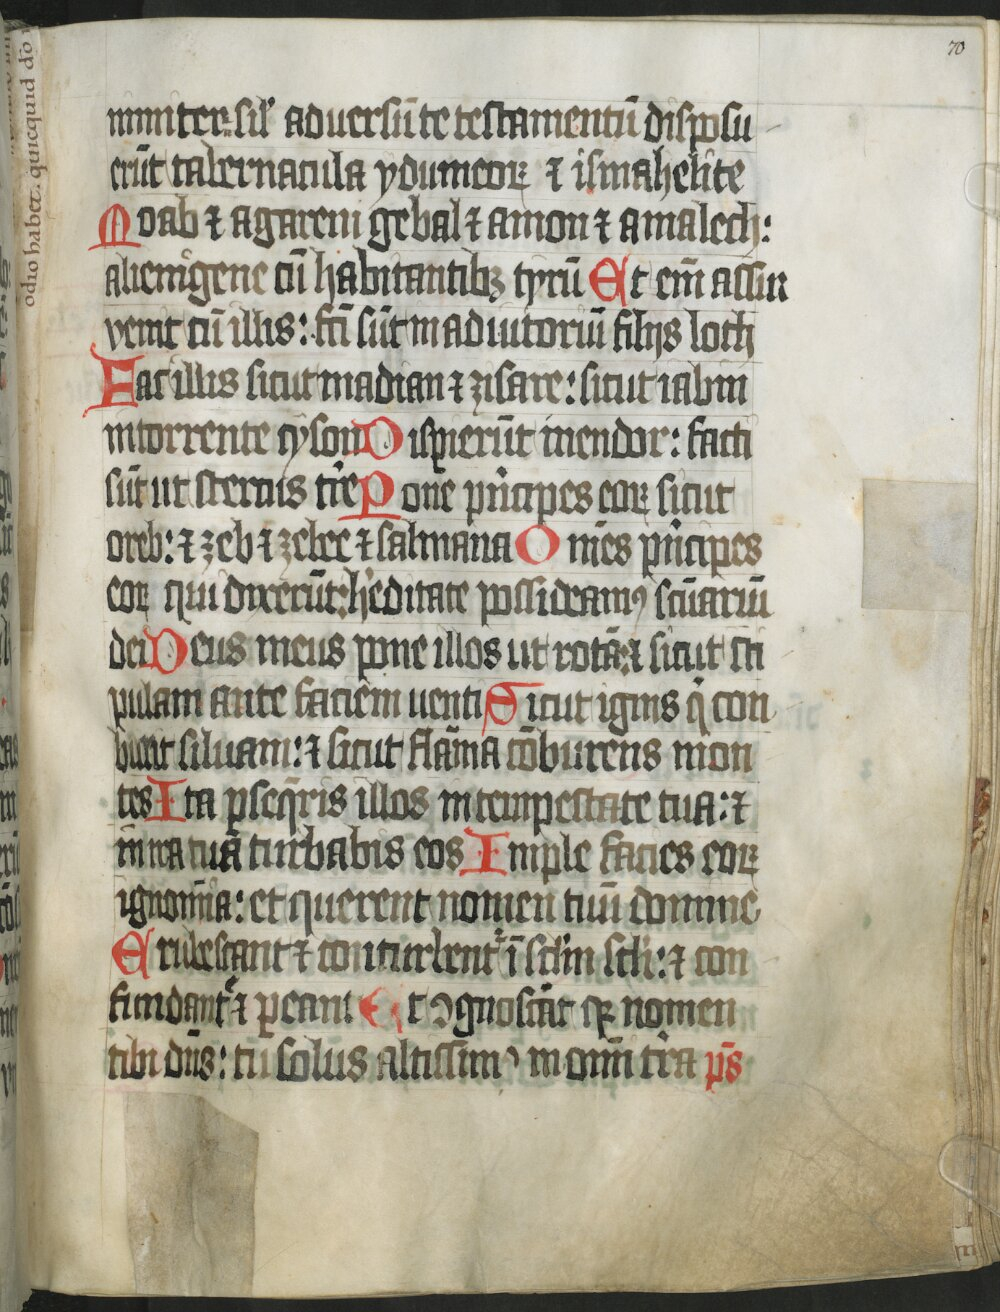 70
odio habet. quicquid do
nimiter. sil' aduersũ te testamentũ disposu
erũt tabernacula ydumeoꝝ ⁊ ismahelite
Moab ⁊ agareni gebal ⁊ amon ⁊ amalech:
alienigene cũ habitantibꝫ tyrũ Et em̃ assur
venit cũ illis: fc̃i sũt in adiutoriũ filijs loth
Fac illis sicut madian ⁊ zisare: sicut iabin
in torrente cyson Dispierũt in endor: facti
sũt ut stercus tr̃e Pone pñcipes eoꝝ sicut
oreb: ⁊ zeb ⁊ zebee ⁊ salmana Om̃es pñcipes
eoꝝ qui dixerũt: h̾editate possideamꝰ sc̃uariũ
dei Deus meus pone illos ut rotã: ⁊ sicut sti
pulam ante faciem uenti Sicut ignis q̃ con
burit siluam: ⁊ sicut flãma cõburens mon
tes Ita ꝑseq̃ris illos in tempestate tua: ⁊
in ira tua turbabis eos Imple facies eoꝝ
ignomĩa: et querent nomen tuũ domine
Erubescant ⁊ conturbent᷑ ĩ sc̃lm̃ sc̃li: ⁊ con
fundant᷑ ⁊ ꝑeant Et ꝯgnoscãt qꝛ nomen
tibi dñs: tu solus altissimꝰ in omñi tr̃a p̃s